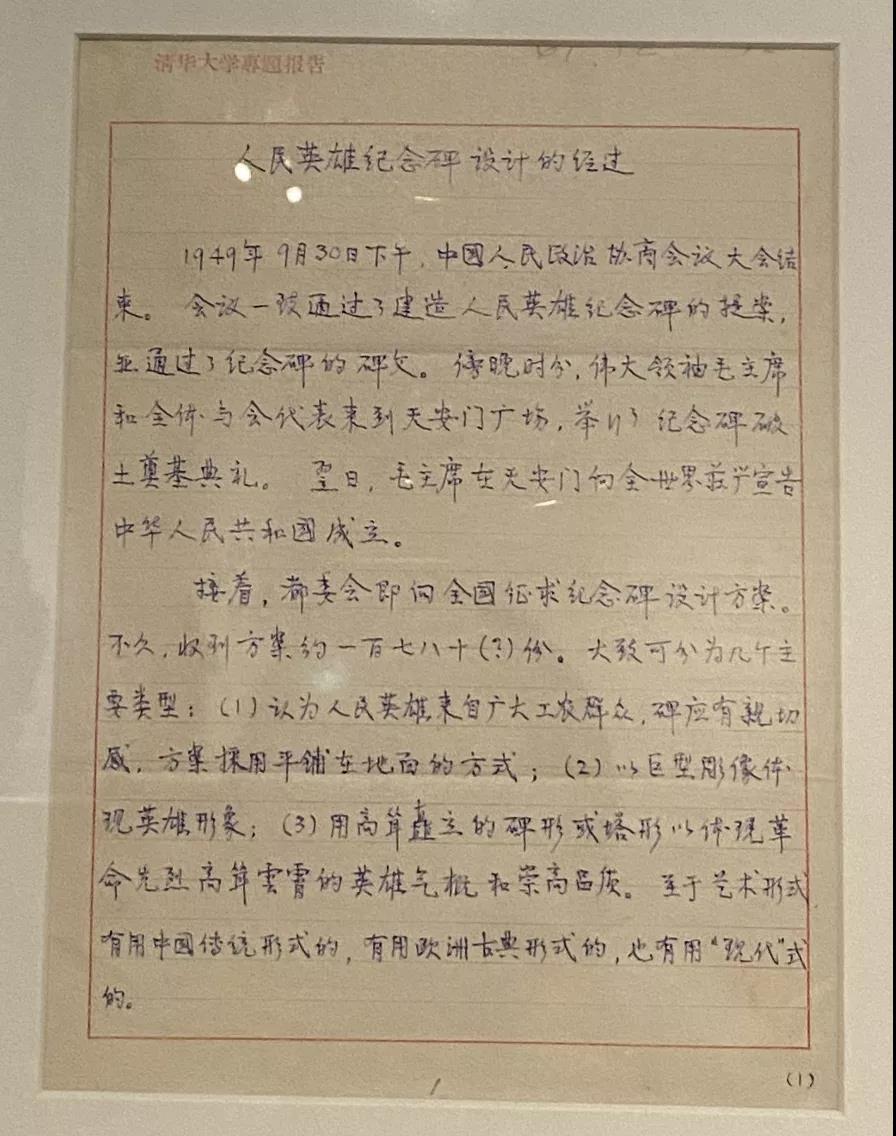 清华大学專题报告
人民英雄纪念碑设计的经过
1949年9月30日下午，中國人民政治协商会议大会结
束。会议一致通过了建造人民英雄纪念碑的提案，
並通过了纪念碑的碑文。傍晚时分，伟大领袖毛主席
和全体与会代表来到天安门广场，举行了纪念碑破
土奠基典礼。翌日，毛主席在天安门向全世界莊严宣告
中华人民共和國成立。
接着，都委会即向全国征求纪念碑设计方案。
不久，收到方案约一百七八十(?)份。大致可分为几个主
要类型：(1)认为人民英雄来自广大工农群众，碑应有親切
感，方案採用平铺在地面的方式；(2)以巨型彫像体
现英雄形象；(3)用高耸矗立的碑形或塔形以体现革
命先烈高耸雲霄的英雄气概和崇高品质。至于艺术形式
有用中國传统形式的，有用欧洲古典形式的，也有用“现代”式
的。
1
(1)